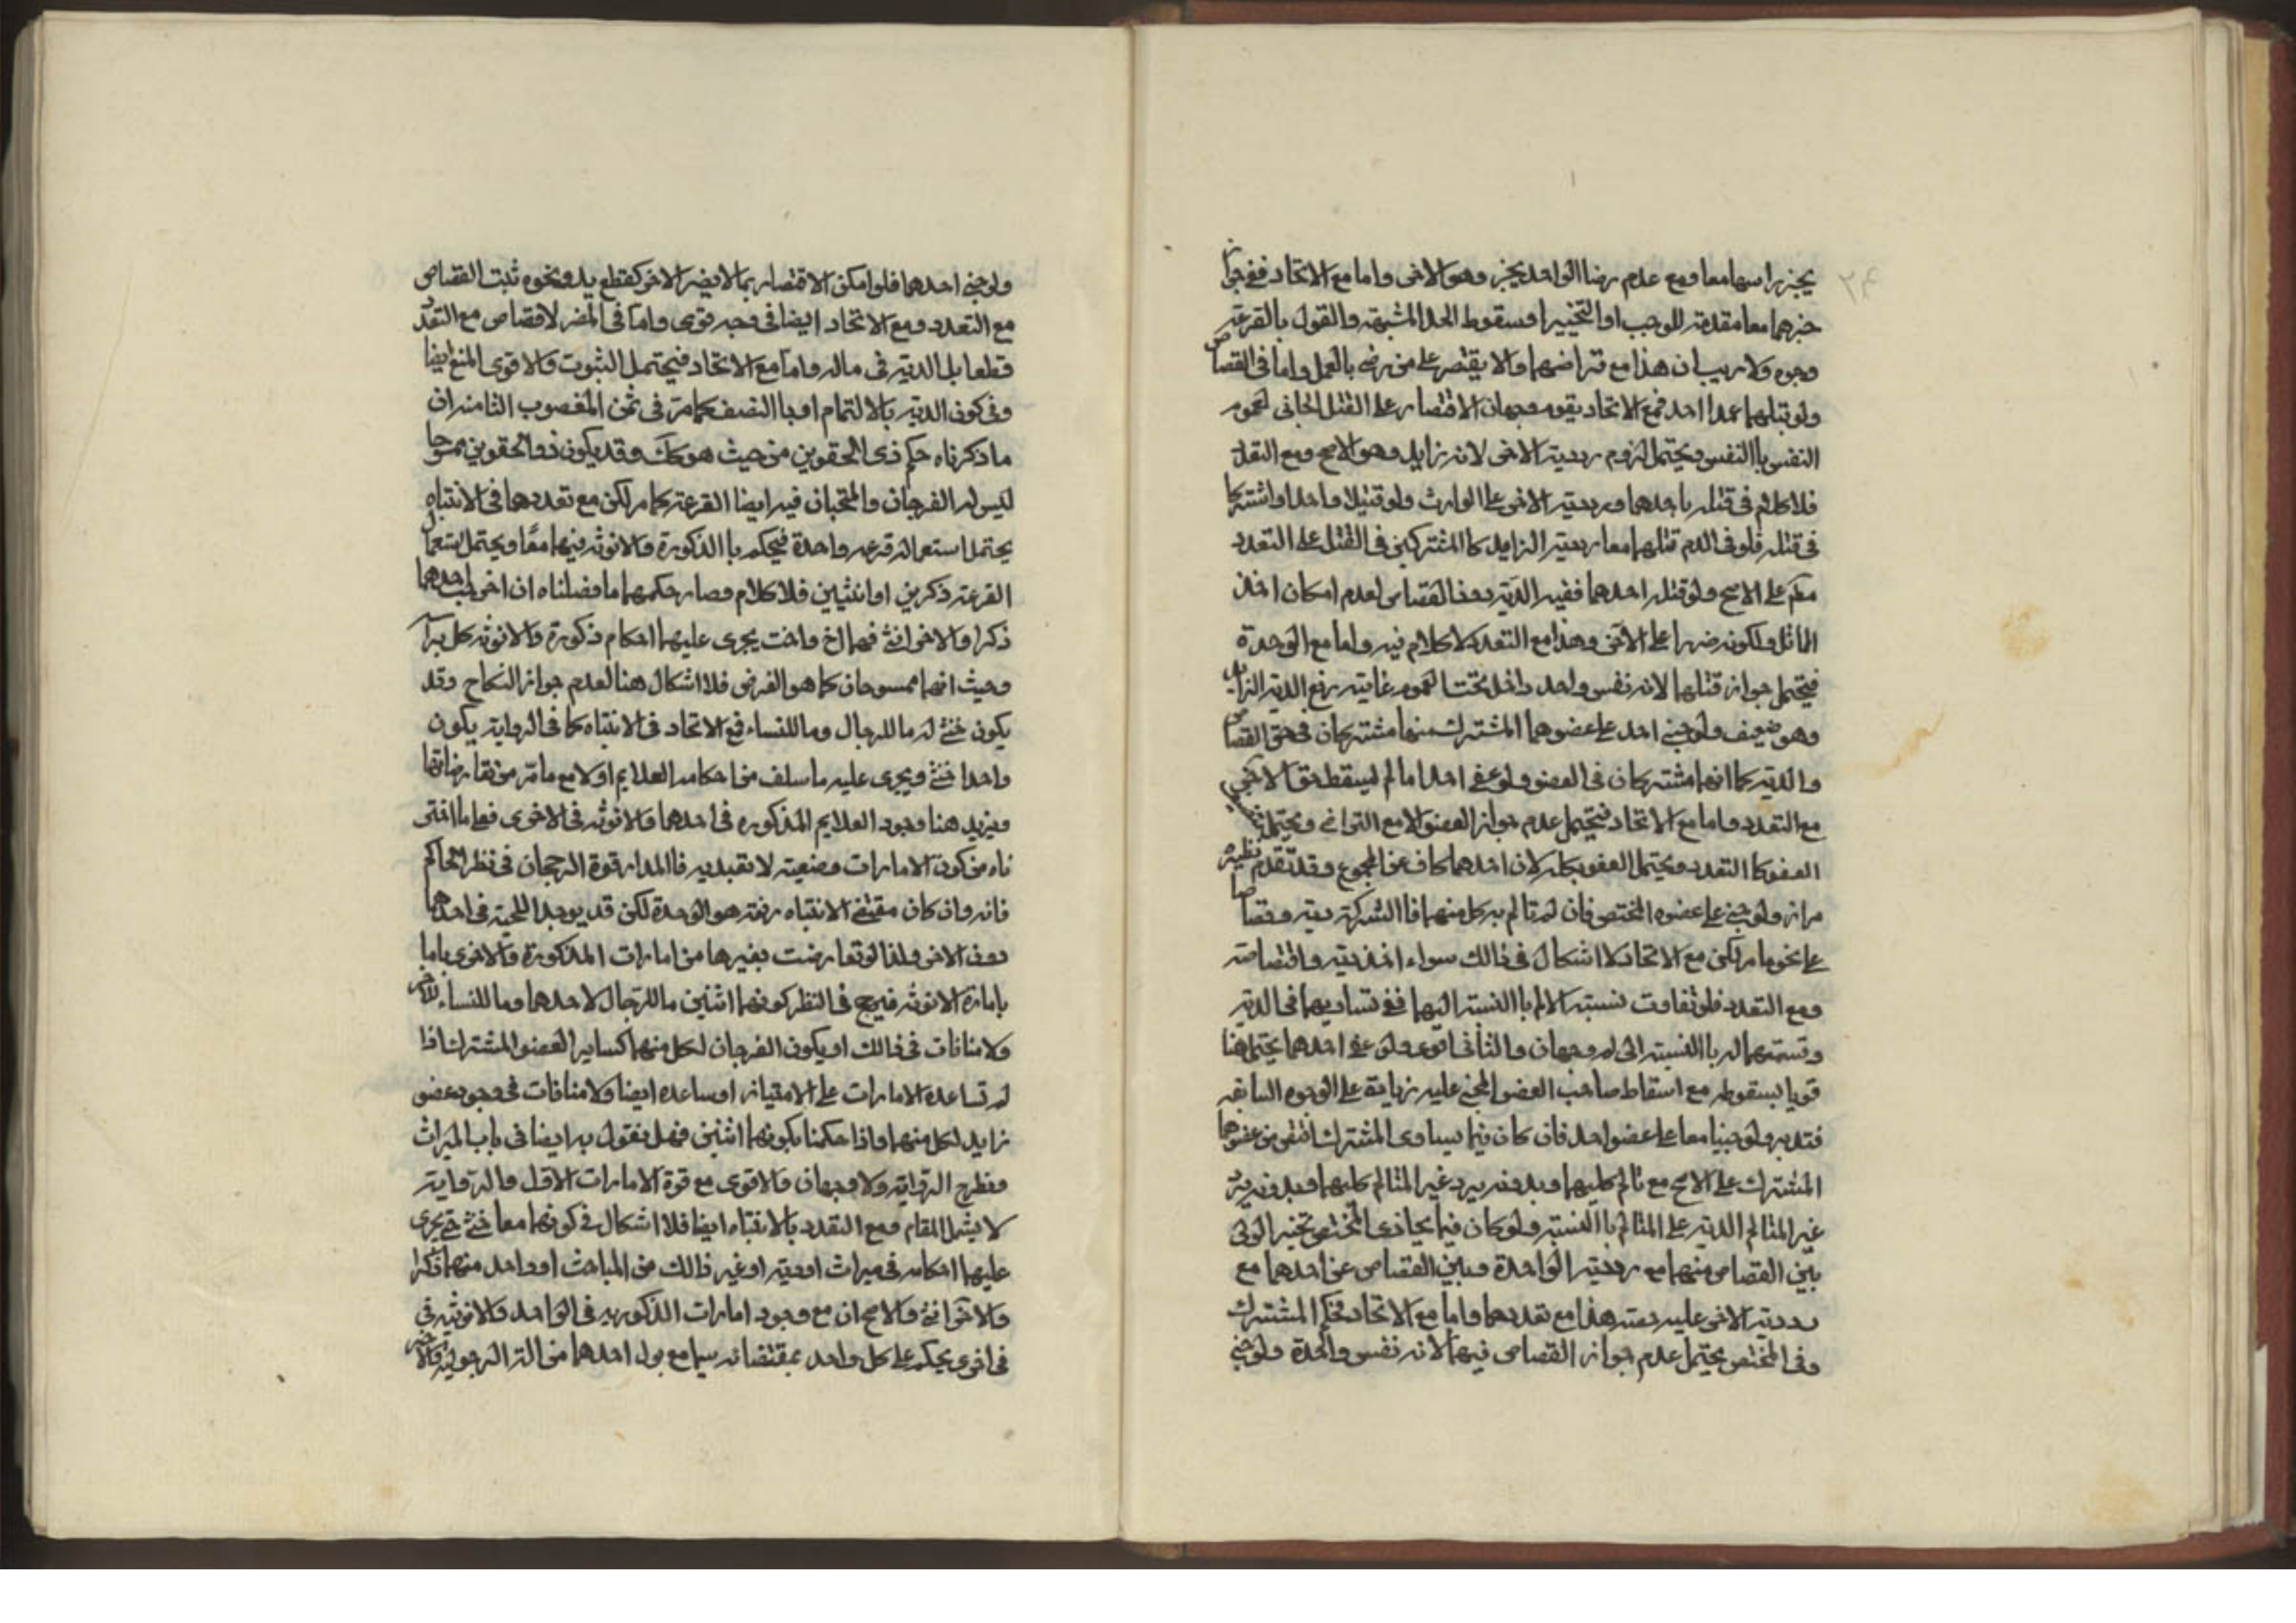 ۲۴
يجز راسهما معا ومع عدم رضا الواحد يجز وهو الاخى واما مع الاتحاد ففى جواز
جزهما معا مقدمة للوجب او التخيير او سقوط الحد المشبهة والقول بالقرعة
وجوه ولا ريب ان هذا مع تراضيهما والا يقتصر على من رضى بالعمل واما فى القصاص
ولو قتلهما عمدا احد فمع الاتحاد يقوم وجهان الاقتصار على القتل الجانى لعموم
النفس باالنفس ويحتمل لزوم رد دية الاخى لانه زايد وهو الاصح ومع التعدد
فلا كلام فى قتله باحدهما ورد دية الاخى على الوارث ولو قتيلا واحدا واشتركا
فى قتله فلو فى الدم قتلهما معا رد دية الزايد كاالمشتركين فى القتل على التعدد
على الاصح ولو قتله احدهما ففيه الدية دون القصاص لعدم امكان اخذ
الماثل ولكونه ضررا على الاخى وهذا مع التعدد لا كلام فيه واما مع الوحدة
فيحتمل جواز قتلهما لانه نفس واحد داخل تحت العموم غايته رفع الدية الزايد
وهو ضعيف ولو جنى احد على عضوهما المشترك منهما مشتركان فى حق القصاص
والدية كما انهما مشتركان فى العضو ولو عفى احدا ما لم ليسقط حق الاخى
مع التعدد واما مع الاتحاد فيحتمل عدم جواز العفو الا مع التراضى ويحتمل
العفو كا التعدد ويحتمل العفو بكله لان احدهما كاف عن المجموع وقد تقدم نظيره
مرارا ولو جنى على عضوه المختص فان لم تالم به كل منهما فاالشركة دية وقصاصا
على نحو ما مر لكن مع الاتحاد لا اشكال فى ذالك سواء اخذ دية واقتصاصه
ومع التعدد فلو تفاوت نسبة الالم باالنسبة اليهما ففى تساويهما فى الدية
وقسمتهما له باالنسبة الى له وجهان والثانى اقوى ولو عفى احدهما يحتمل هنا
قويا بسقوطه مع اسقاط صاحب العضو المجنى عليه زيادة على الوجوه السابقه
فتدبر ولو جنيا معا على عضو احد فان كان فيما يساوى المشترك اقتص من عضوهما
المشترك على الاصح مع تالم كليهما وبدونه يرد غير المتالم كليهما وبدونه يرد
غير المتالم الدية على المتالم باالنسبة ولو كان فيما يحاذى المختص تخير الولى
بين القصاص منهما مع رد دية الواحدة وبين القصاص عن احدهما مع
رد دية الاخى عليه ديته هذا مع تعددهما واما مع الاتحاد فحكم المشترك
وفى المختص يحتمل عدم جواز القصاص فيهما لانه نفس واحدة ولو جنى
ولو جنى احدهما فلو امكن الاقتصار بما لا يضر الاخر كقطع يد ونحوه ثبت القصاص
مع التعدد ومع الاتحاد ايضا فى وجه قوى واما فى المضر لا قصاص مع التعدد
قطعا بل الدية فى ماله واما مع الاتحاد فيحتمل الثبوت والاقوى المنع ايضا
وفى كون الدية باالتمام او باالنصف كما مر فى ثمن المغصوب الثامنه ان
ما ذكرناه حكم ذى الحقوين من حيث هو كك وقد يكون ذو الحقوين ممسوحا
ليس له الفرجان والمتحبان فيه ايضا القرعة كما مر لكن مع تعددهما فى الانتباه
يحتمل استعمال قرعه واحدة فيحكم باالذكورة والانوثه فيهما معًا ويحتمل استعمال
القرعة ذكرين او انثيين فلا كلام وصار حكمهما ما فصلناه ان اخرجت احدهما
ذكرا والاخى انثى فهما اخ واخت يجرى عليهما احكام ذكورة والانوثه كل
وحيث انهما ممسوحان كما هو الفرض فلا اشكال هنا لعدم جواز النكاح وقد
يكون خنثى له ما للرجال وما للنساء فمع الاتحاد فى الانتباه كما فى الرواية يكون
واحدا خنثى ويجرى عليه ما سلف من احكامه العلايم اولا مع ما مر من تعارضاتها
ويزيد هنا وجود العلايم المذكوره فى احدهما والانوثه فى الاخرى فعلى ما اختر
ناه من كون الامارات وضعيته لا تعبديه فاالمدار قوة الرجحان فى نظر الحاكم
فانه وان كان مقتضى الانتباه رفعة هو الوحدة لكن قد يوجد اللحية فى احدهما
دون الاخى ولذا لو تعارضت بغيرها من امارات المذكورة والاخرى باما
بامارة الانوثه فيرجح فى النظر كونهما اثنين ما للرجال لاحدهما وما للنساء للاخر
ولا منافات فى ذالك او يكون الفرجان لكل منهما كساير العضو المشترك اذا
لم تساعده الامارات على الامتياز او ساعده ايضا ولا منافات فى وجود عضو
زايد لكل منهما واذا حكمنا بكونهما اثنين فهل نقول به ايضا فى باب الميراث
ونطرح الرواية ولا وجهان والاقوى مع قوة الامارات الاول والرواية
لا يشمل المقام ومع التعدد باالانتباه ايضا فلا اشكال فى كونهما معا خنثى حتى يجرى
عليهما احكامه فى ميراث او دية او غير ذالك من المباحث او واحد منهما ذكرا
والاخرى انثى والاصح ان مع وجود امارات الذكوريه فى الواحد والانوثيه فى
فى اخرى يحكم على كل واحد بمقتضاه سيما مع بول احدهما من الة الرجولية والاخر